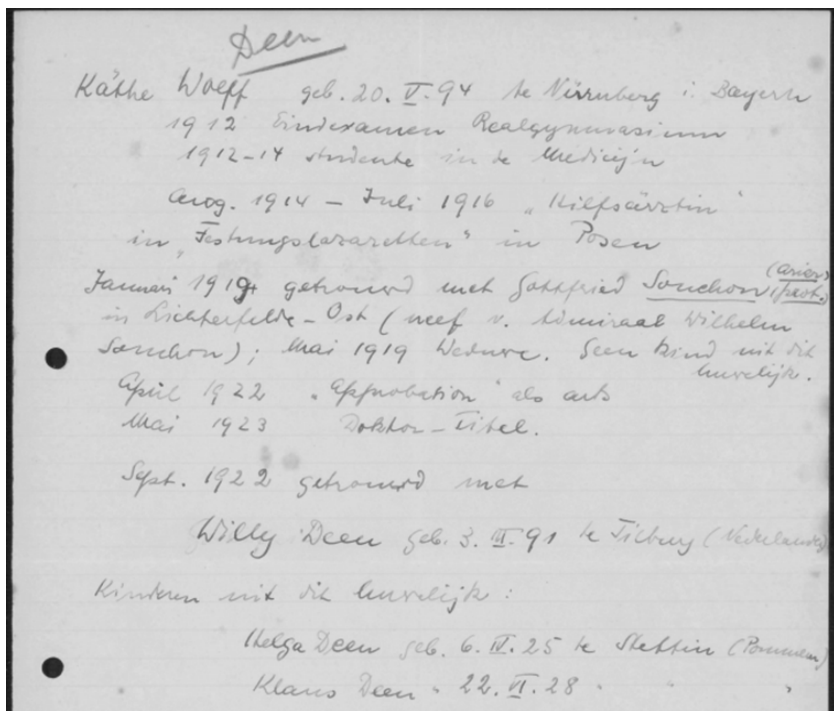 Deen
Käthe Wolff geb. 20. V. 94 te Nürnberg i. Bayern
1912 Eindexamen Realgymnasium
1912-14 studente in de Medicijn
Aug. 1914 - Juli 1916 „Hilfsärztin"
in „Festungslazaretten" in Posen
Januari 1919 getrouwd met Gottfried Souchon (arier, prot.)
in Lichterfelde-Ost (neef v. Admiraal Wilhelm
Souchon); Mai 1919 Weduwe. Geen kind uit dit
huwelijk.
April 1922 „Approbation" als arts
Mai 1923 Doktor-Titel.
Sept. 1922 getrouwd met
Willy Deen geb. 3. III. 91 te Tilburg (Nederlanden)
Kinderen uit dit huwelijk:
Helga Deen geb. 6. IV. 25 te Stettin (Pommern)
Klaus Deen " 22. VI. 28 " "